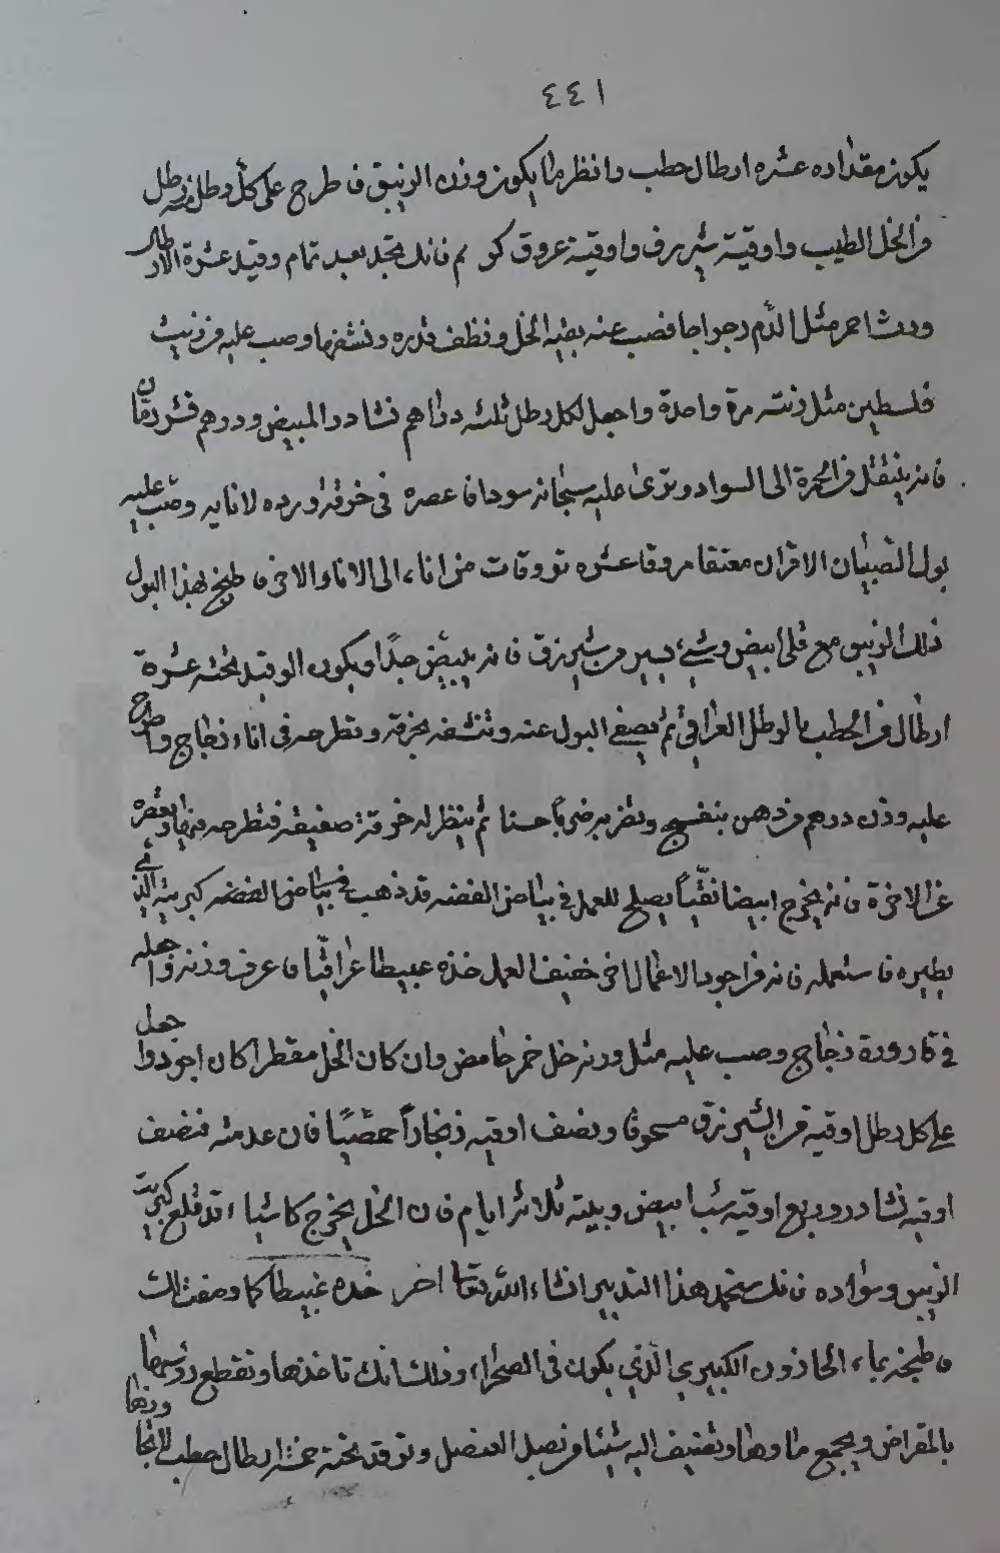 ٤٤١
يكون مقداره عشره ارطال حطب وانظر ما يكون وزن الزيبق فاطرح على كل رطل منه رطل
من الخل الطيب واوقية شيزرق واوقية عروق كركم فانك تجد بعد تمام وقيد عشرة الارطال
احمر مثل الدم فصب عنه بقية الخل ونظف قدره ونشفها وصب عليه من زيت
فلسطين مثل زنته مرة واحدة واجعل لكل رطل ثلثه دراهم نشادر المبيض ودرهم قشر رمان
فانه ينتقل من الحمرة الى السواد وترى عليه سوداء فاعصره في خرقة ورده لانايه وصب عليه
بول الصبيان الاقران معتقا مروقا عشره تروقات من اناء الى الاناء الاخر فاطبخ بهذا البول
ذلك الزيبق مع قلى ابيض وشىء يسير من شيزرق فانه يبيض جدًا ويكون الوقيد تحته عشرة
ارطال من الحطب بالرطل العراقي ثم يصفى البول عنه وتنشفه بخرقة وتطرحه فى اناء زجاج واطرح
عليه وزن درهم من دهن بنفسج وتضربه ضربًا حسنا ثم ينظر له خرقة صفيقه فتطرحه فيها وبعصره
عن الاخرة فانه يخرج ابيضا نقيًا يصلح للعمل في بياض الفضه قد ذهب في بياض الفضه كبريتية الذي
يطيره فاستعمله فانه من اجود الاعمال اخر خفيف العمل خذه عبيطا عراقيًا فاعرف وزنه واجعله
في قارورة زجاج وصب عليه مثل وزنه خل خمر حامض وان كان الخل مقطرا كان اجود واجعل
على كل رطل اوقيه من الشيزرق مسحوقا ونصف اوقيه زنجاراً حمصيًا فان عدمته فنصف
اوقيه نشادر وربع اوقيه شب ابيض وبيته ثلاثة ايام فان الخل يخرج قد قلع كبريت
الزيبق وسواده فانك ستحمد هذا التدبير انشاء الله تعالى اخر خذه عبيطا كما وصفت لك
فاطبخه بماء الحلزون الكبير الذي يكون فى الصحراء وذلك انك تاخذها وتقطع رؤسها
بالمقراض ويجمع ماوها وتضيف اليه شيئا من بصل العنصل وتوقد تحته خمسة ارطال حطب